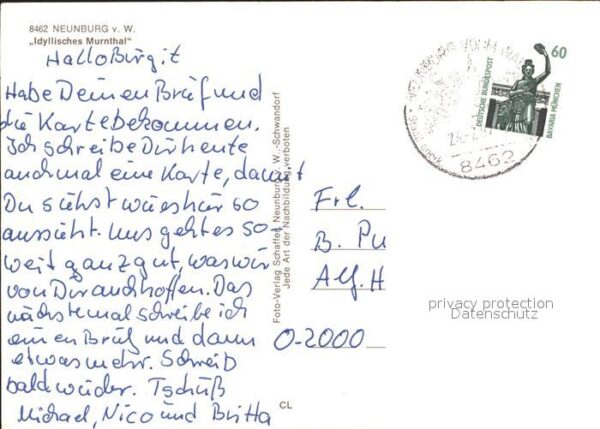 8462 NEUNBURG v. W.
„Idyllisches Murnthal"
Hallo Birgit
Habe Deinen Brief und
die Karte bekommen.
Ich schreibe Dir heute
auch mal eine Karte, damit
Du siehst wie es hier so
aussieht. Uns geht es so-
weit ganz gut, was wir
von Dir auch hoffen. Das
nächstemal schreibe ich
einen Brief und dann
etwas mehr. Schreib
bald wieder. Tschüß
Michael, Nico und Britta
Foto-Verlag Schaffer, Neunburg v. W.-Schwandorf
Jede Art der Nachbildung verboten
CL
NEUNBURG VORM WALD
8462
60
DEUTSCHE BUNDESPOST
BAVARIA MÜNCHEN
Frl.
B. Pu
Alf. H
O-2000
privacy protection
Datenschutz